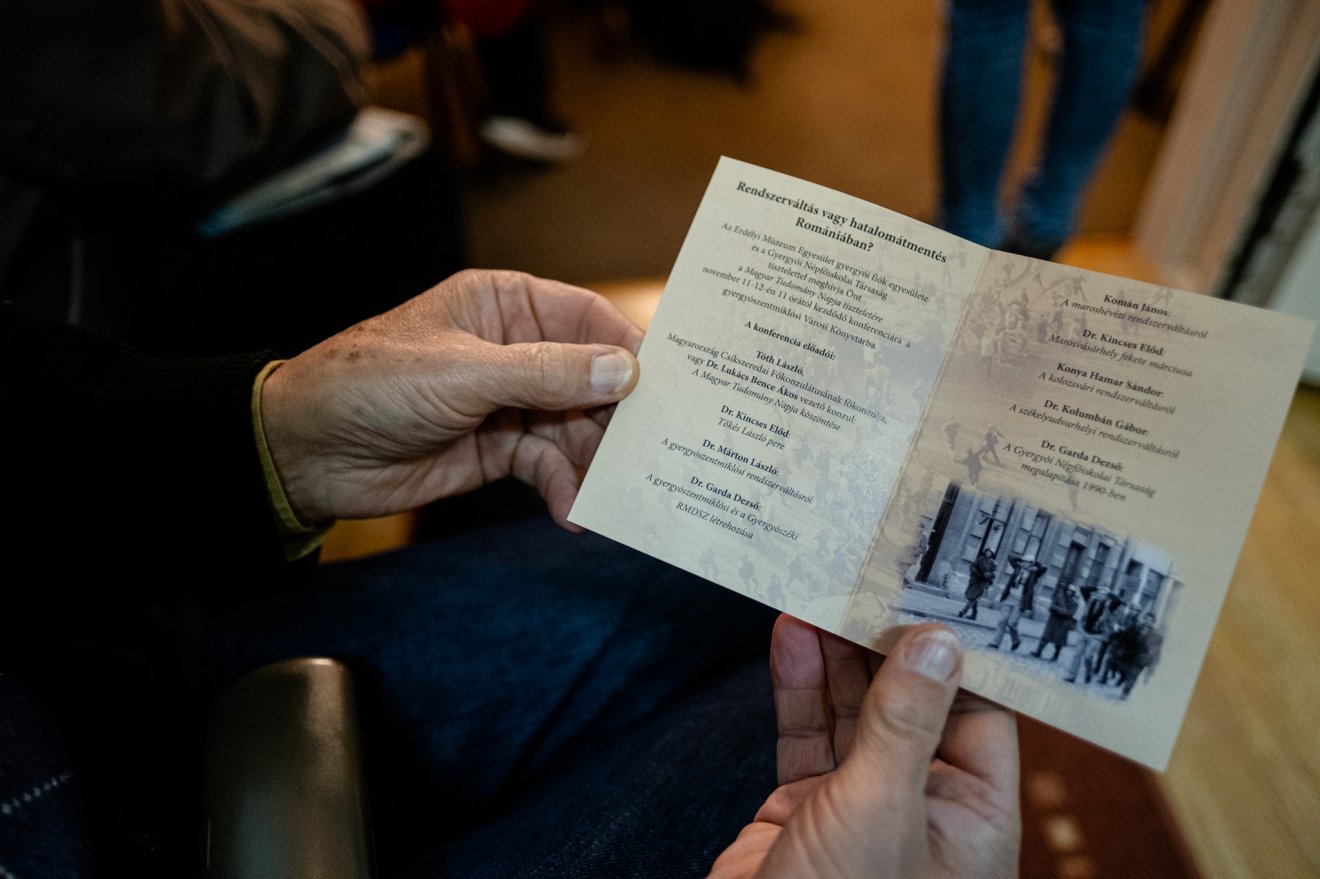 Rendszerváltás vagy hatalomátmentés
Romániában?
Az Erdélyi Múzeum Egyesület gyergyói fiók egyesülete
és a Gyergyói Népfőiskolai Társaság
tisztelettel meghívja Önt
a Magyar Tudomány Napja tiszteletére
november 11-12-én 11 órától kezdődő konferenciára a
gyergyószentmiklósi Városi Könyvtárba.
A konferencia előadói:
Tóth László,
Magyarország Csíkszeredai Főkonzulátusának főkonzulja,
vagy Dr. Lukács Bence Ákos vezető konzul:
A Magyar Tudomány Napja köszöntése
Dr. Kincses Előd:
Tőkés László pere
Dr. Márton László:
A gyergyószentmiklósi rendszerváltásról
Dr. Garda Dezső:
A gyergyószentmiklósi és a Gyergyószéki
RMDSZ létrehozása
Komán János:
A maroshévízi rendszerváltásról
Dr. Kincses Előd:
Marosvásárhely fekete márciusa
Konya Hamar Sándor:
A kolozsvári rendszerváltásról
Dr. Kolumbán Gábor:
A székelyudvarhelyi rendszerváltásról
Dr. Garda Dezső:
A Gyergyói Népfőiskolai Társaság
megalapítása 1990-ben